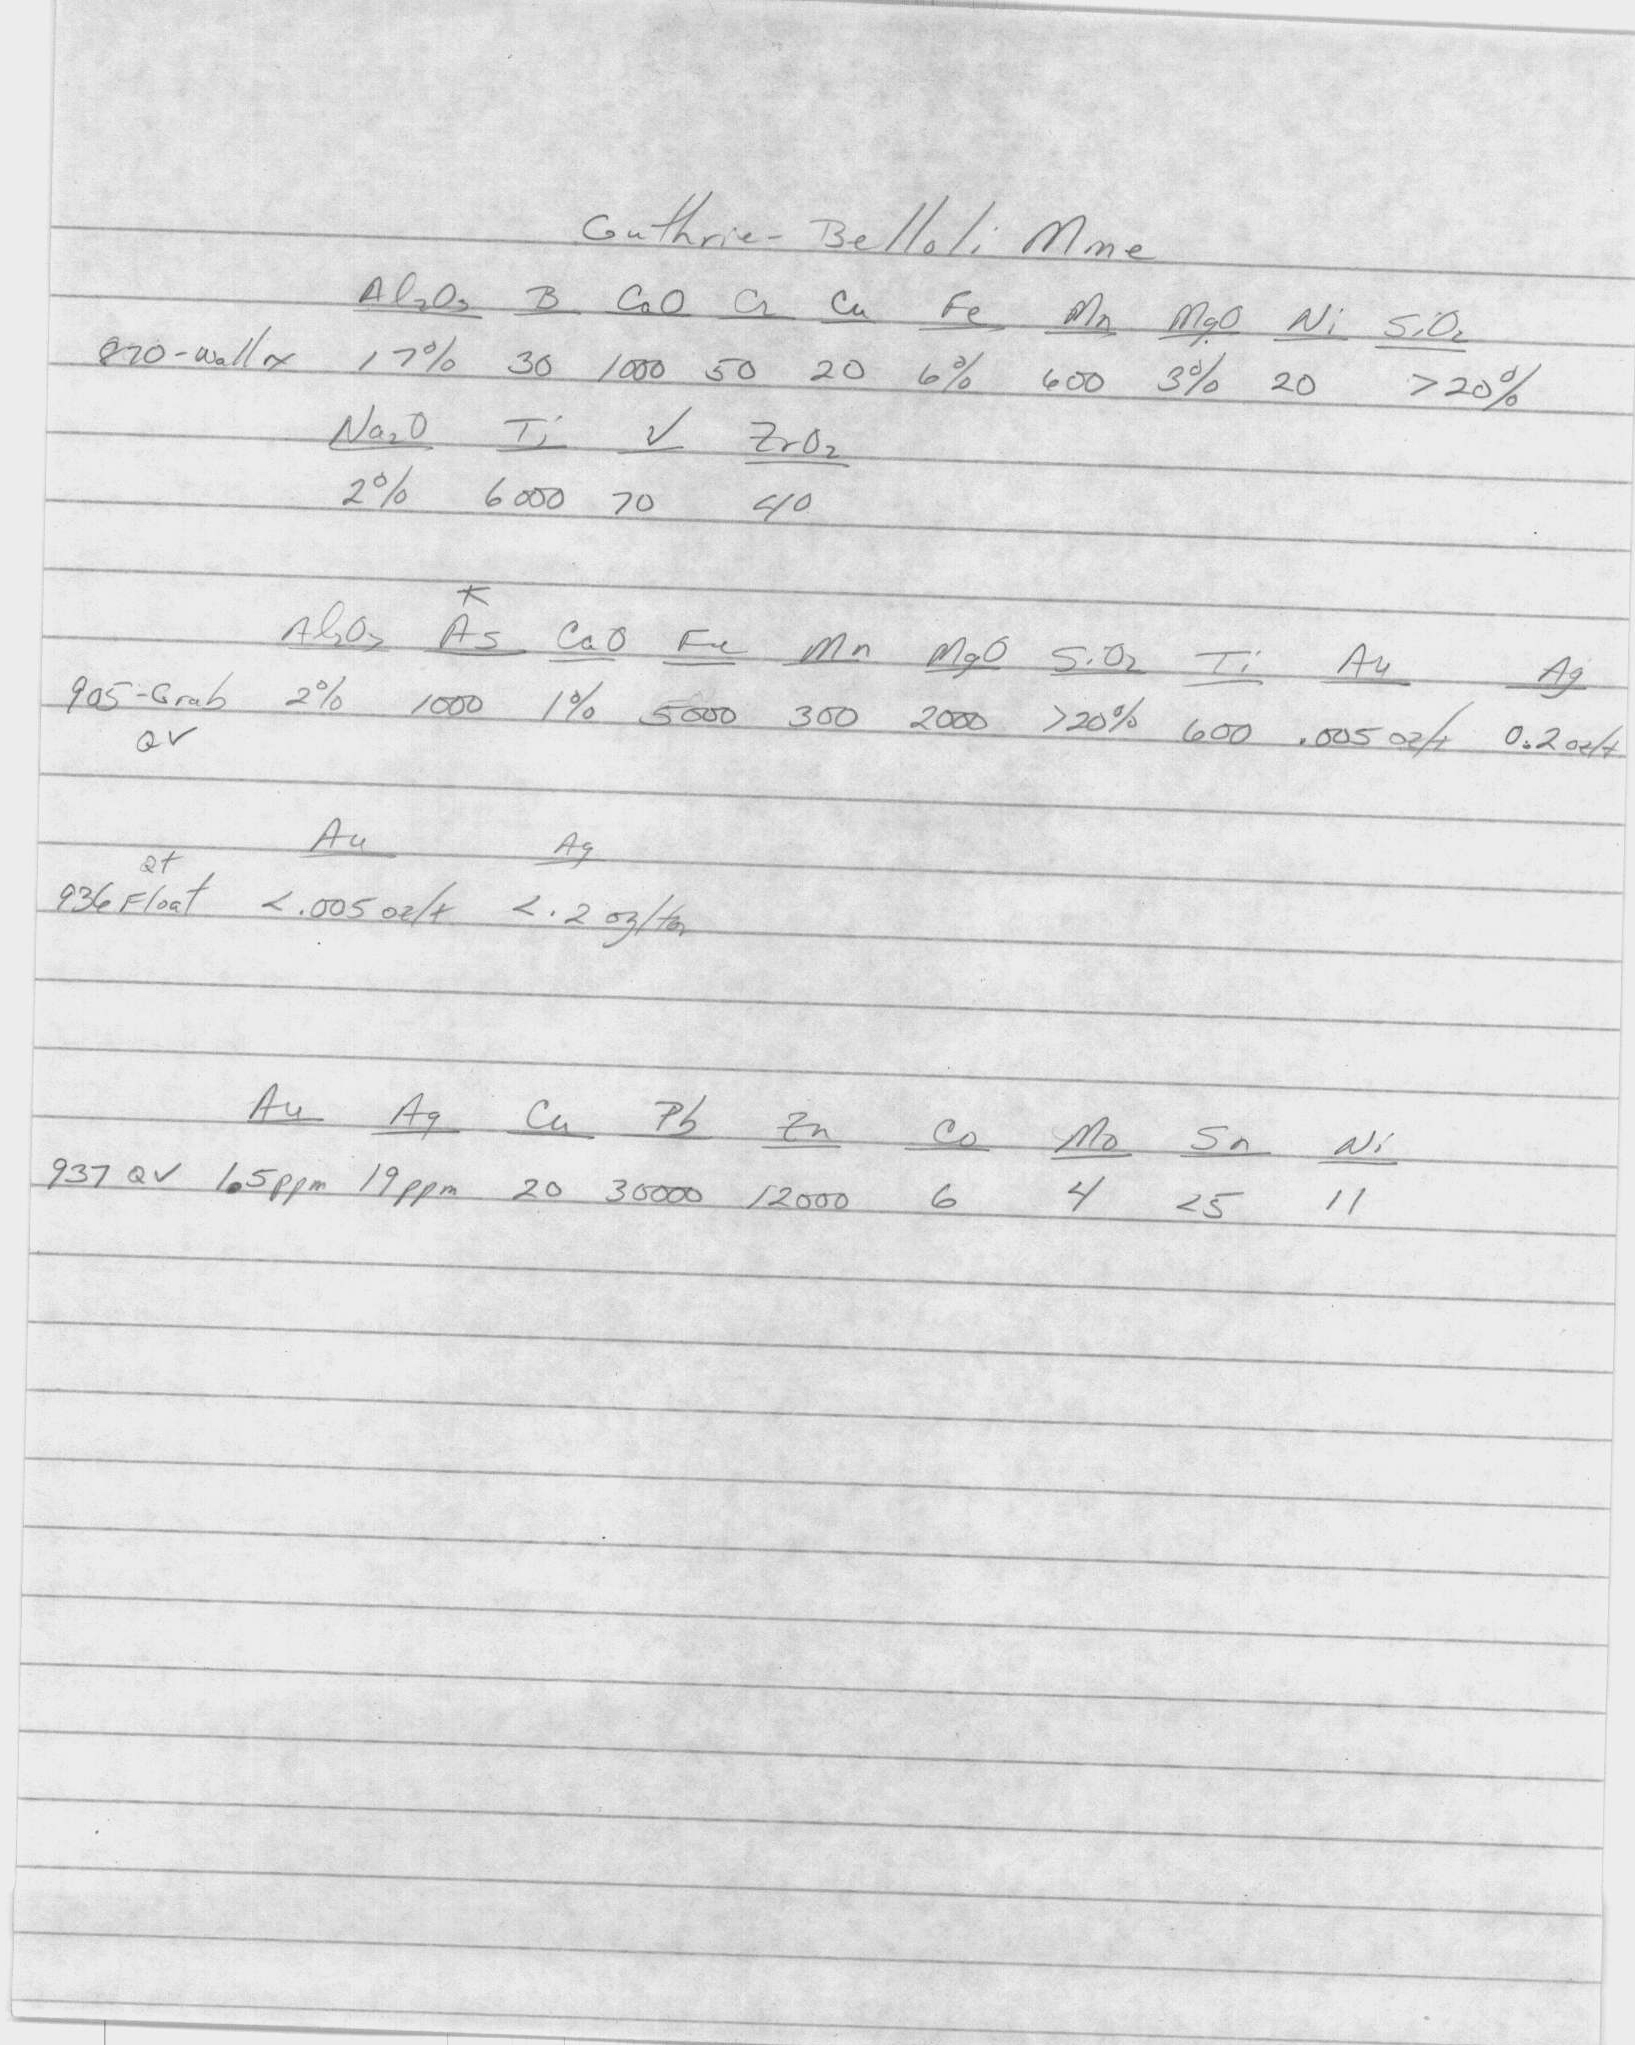 Guthrie-Belloli Mine
Al2O3 B CaO Cr Cu Fe Mn MgO Ni SiO2
870-Wall rx 17% 30 1000 50 20 6% 600 3% 20 >20%
Na2O Ti V ZrO2
2% 6000 70 40
*
Al2O3 As CaO Fe Mn MgO SiO2 Ti Au Ag
905-Grab 2% 1000 1% 5000 300 2000 >20% 600 .005 oz/t 0.2 oz/t
QV
Au Ag
Qt
936 Float <.005 oz/t <.2 oz/ton
Au Ag Cu Pb Zn Co Mo Sn Ni
937 QV 1.5ppm 19ppm 20 30000 12000 6 4 <5 11